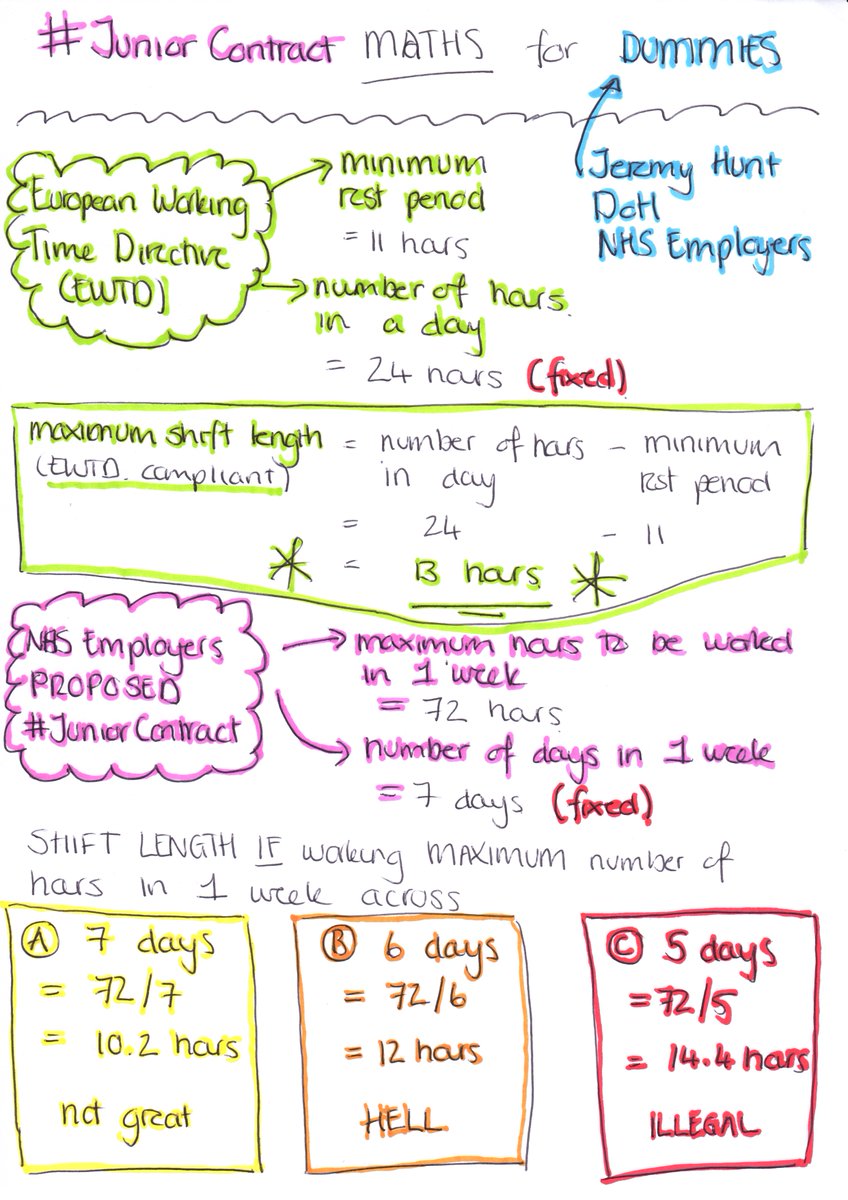 #Junior Contract MATHS for DUMMIES
Jeremy Hunt
DoH
NHS Employers
European Working
Time Directive
(EWTD)
minimum
rest period
= 11 hours
number of hours
in a day
= 24 hours (fixed)
maximum shift length = number of hours - minimum
(EWTD compliant) in day rest period
= 24 - 11
* = 13 hours *
NHS Employers
PROPOSED
#Junior Contract
maximum hours to be worked
in 1 week
= 72 hours
number of days in 1 week
= 7 days (fixed)
SHIFT LENGTH IF working MAXIMUM number of
hours in 1 week across
A 7 days
= 72/7
= 10.2 hours
not great
B 6 days
= 72/6
= 12 hours
HELL
C 5 days
= 72/5
= 14.4 hours
ILLEGAL